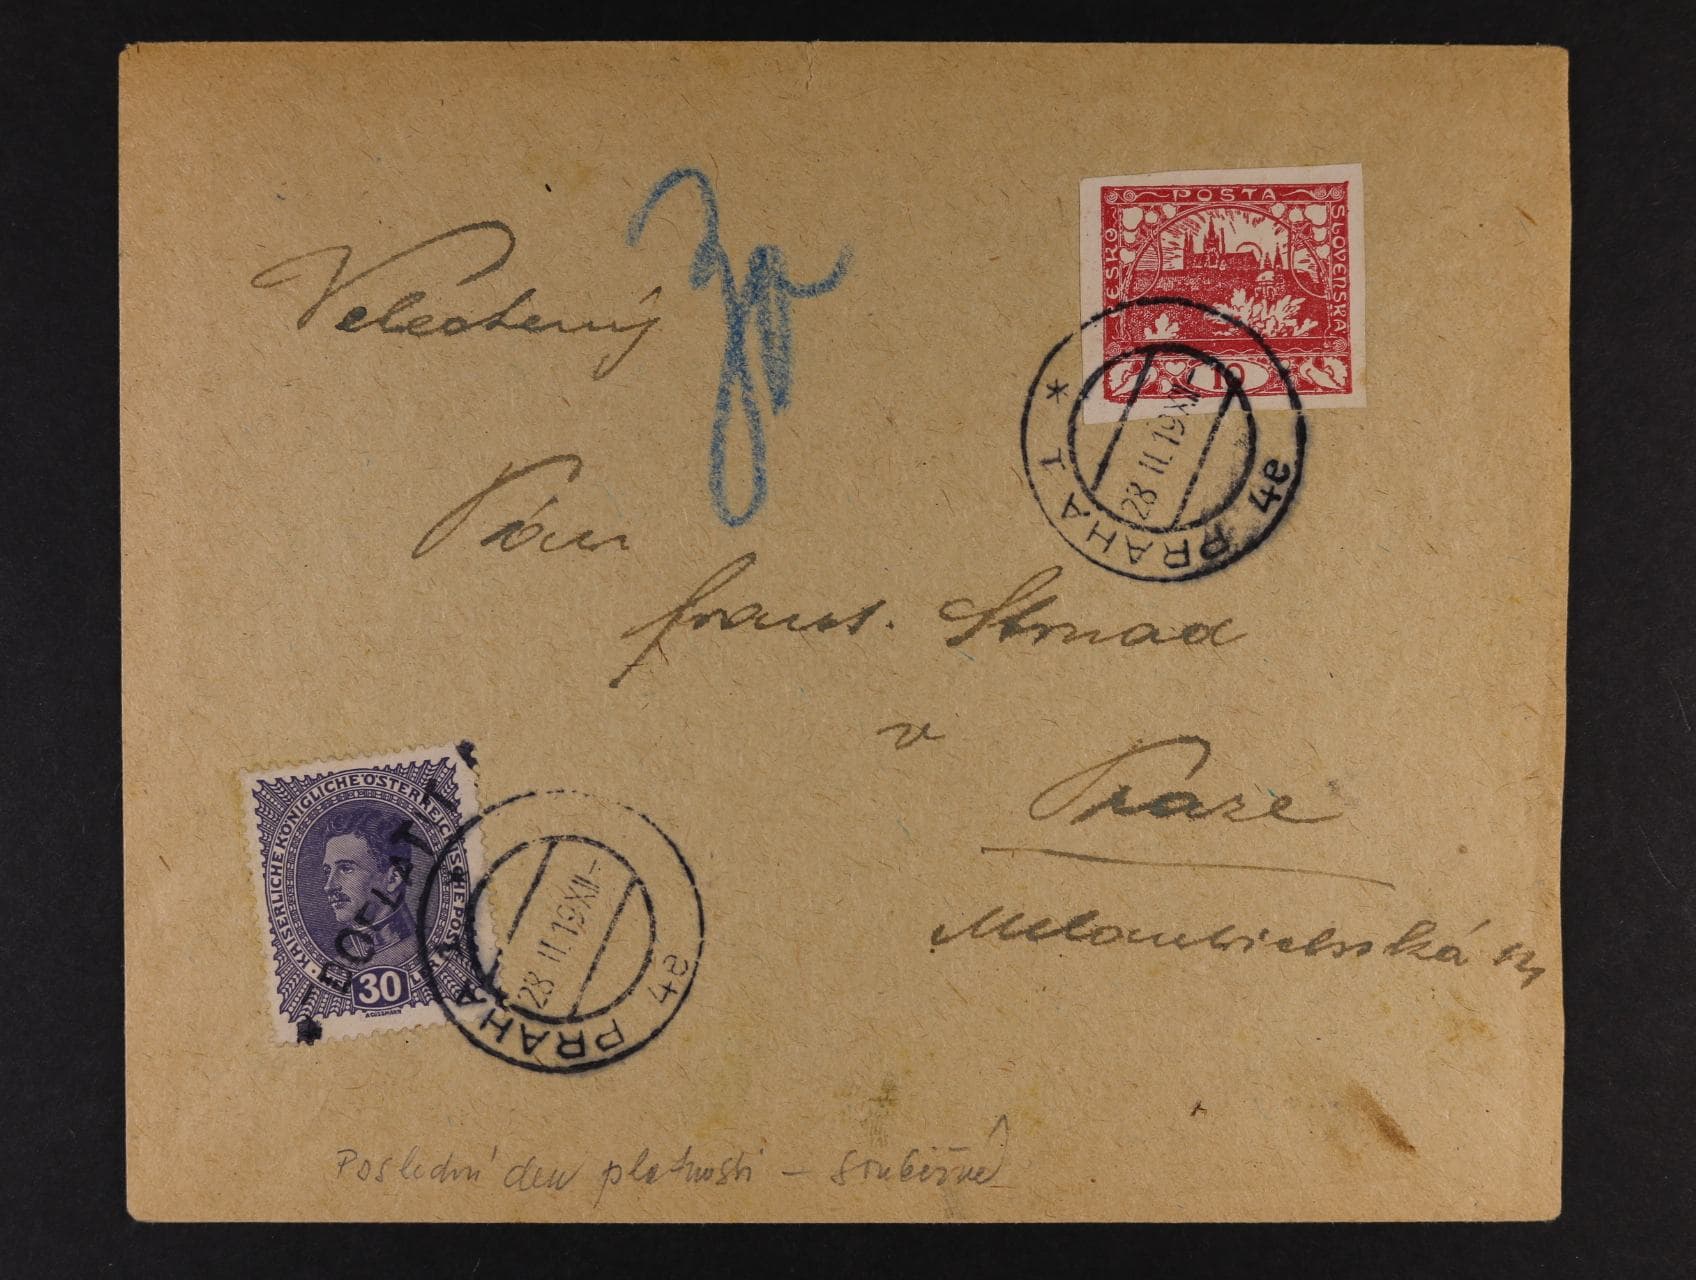 Velectěný
30
POSTA
ČESKO
SLOVENSKÁ
10
PRAHA 1 * 4e
28 II.19 XII-
Pán
Frant. Strnad
v
Praze
Melantrichská
KAISERLICHE KÖNIGLICHE ÖSTERREICHISCHE POST
30
DOPLATIT
PRAHA 1 * 4e
28 II.19 XII-
Poslední den platnosti – souběžné